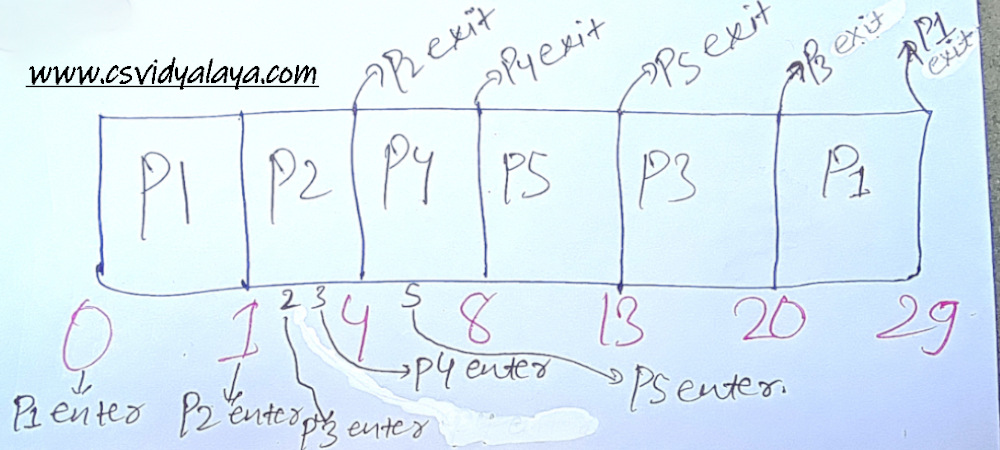 www.csvidyalaya.com
P2 exit P4 exit P5 exit P3 exit P1 exit
P1 P2 P4 P5 P3 P1
0 1 2 3 4 5 8 13 20 29
P1 enter P2 enter P3 enter P4 enter P5 enter.